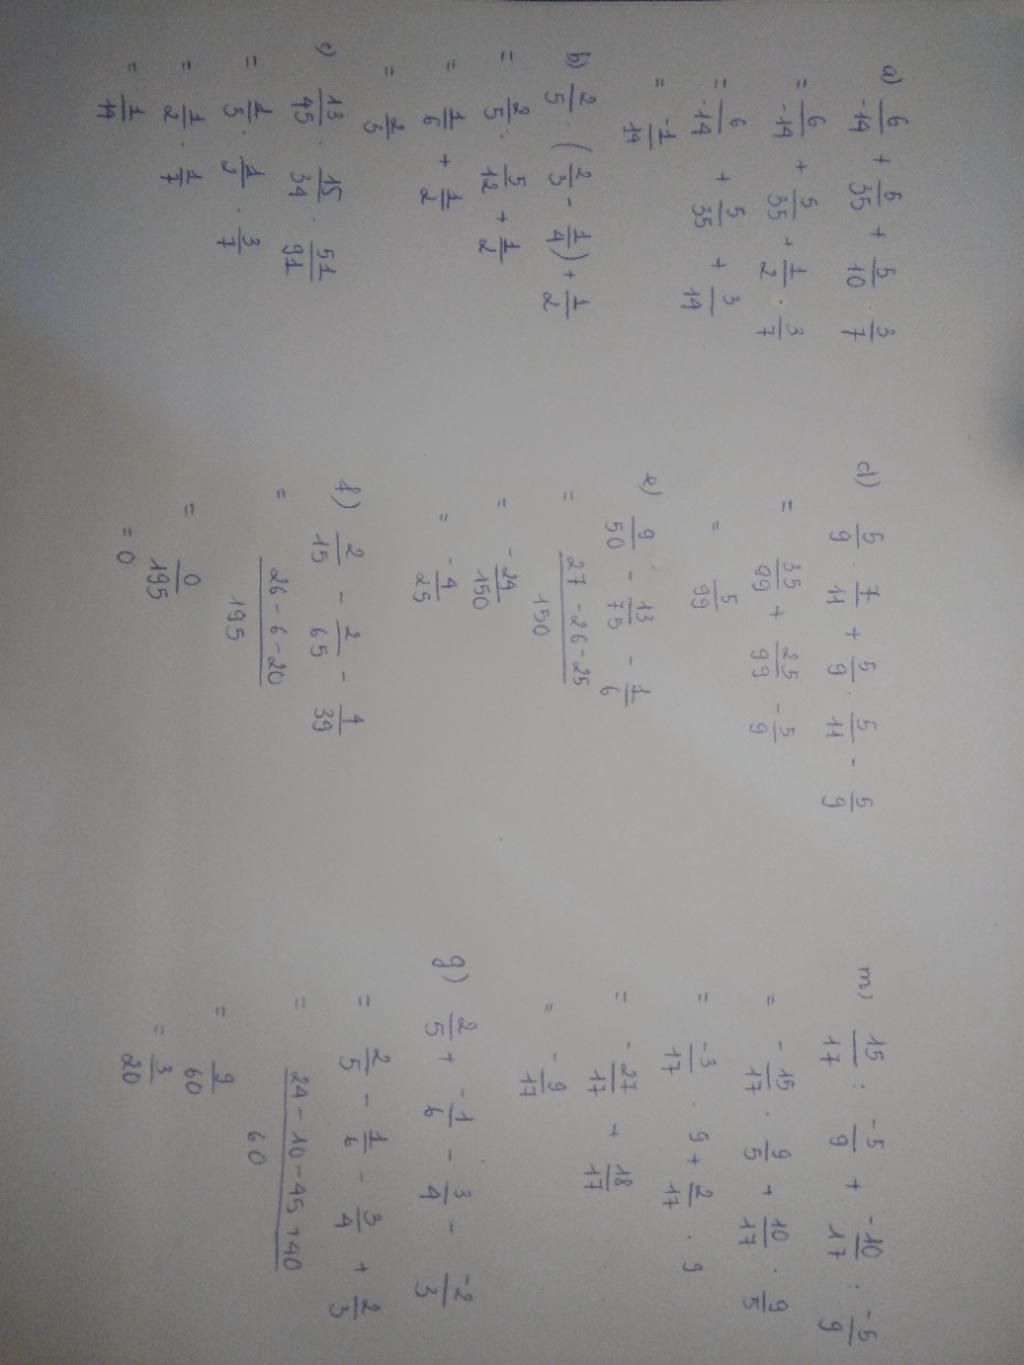 a) 6/-14 + 5/35 + 5/10 . 3/7
= 6/-14 + 5/35 + 1/2 . 3/7
= 6/-14 + 5/35 + 3/14
= -1/14
b) 2/5 . (2/3 - 1/4) + 1/2
= 2/5 . 5/12 + 1/2
= 1/6 + 1/2
= 2/3
c) 13/45 . 15/34 . 51/91
= 1/5 . 1/2 . 3/7
= 1/2 . 1/7
= 1/14
d) 5/9 . 7/11 + 5/9 . 5/11 - 5/9
= 35/99 + 25/99 - 5/9
= 5/99
e) 9/50 - 13/75 - 1/6
= 27 - 26 - 25/150
= -24/150
= -4/25
f) 2/15 - 2/65 - 4/39
= 26 - 6 - 20/195
= 0/195
= 0
m) 15/17 : -5/9 + -10/17 : -5/9
= -15/17 . 9/5 + 10/17 . 9/5
= -3/17 . 9 + 2/17 . 9
= -27/17 + 18/17
= -9/17
g) 2/5 + -1/6 - 3/4 - -2/3
= 2/5 - 1/6 - 3/4 + 2/3
= 24 - 10 - 45 + 40/60
= 9/60
= 3/20